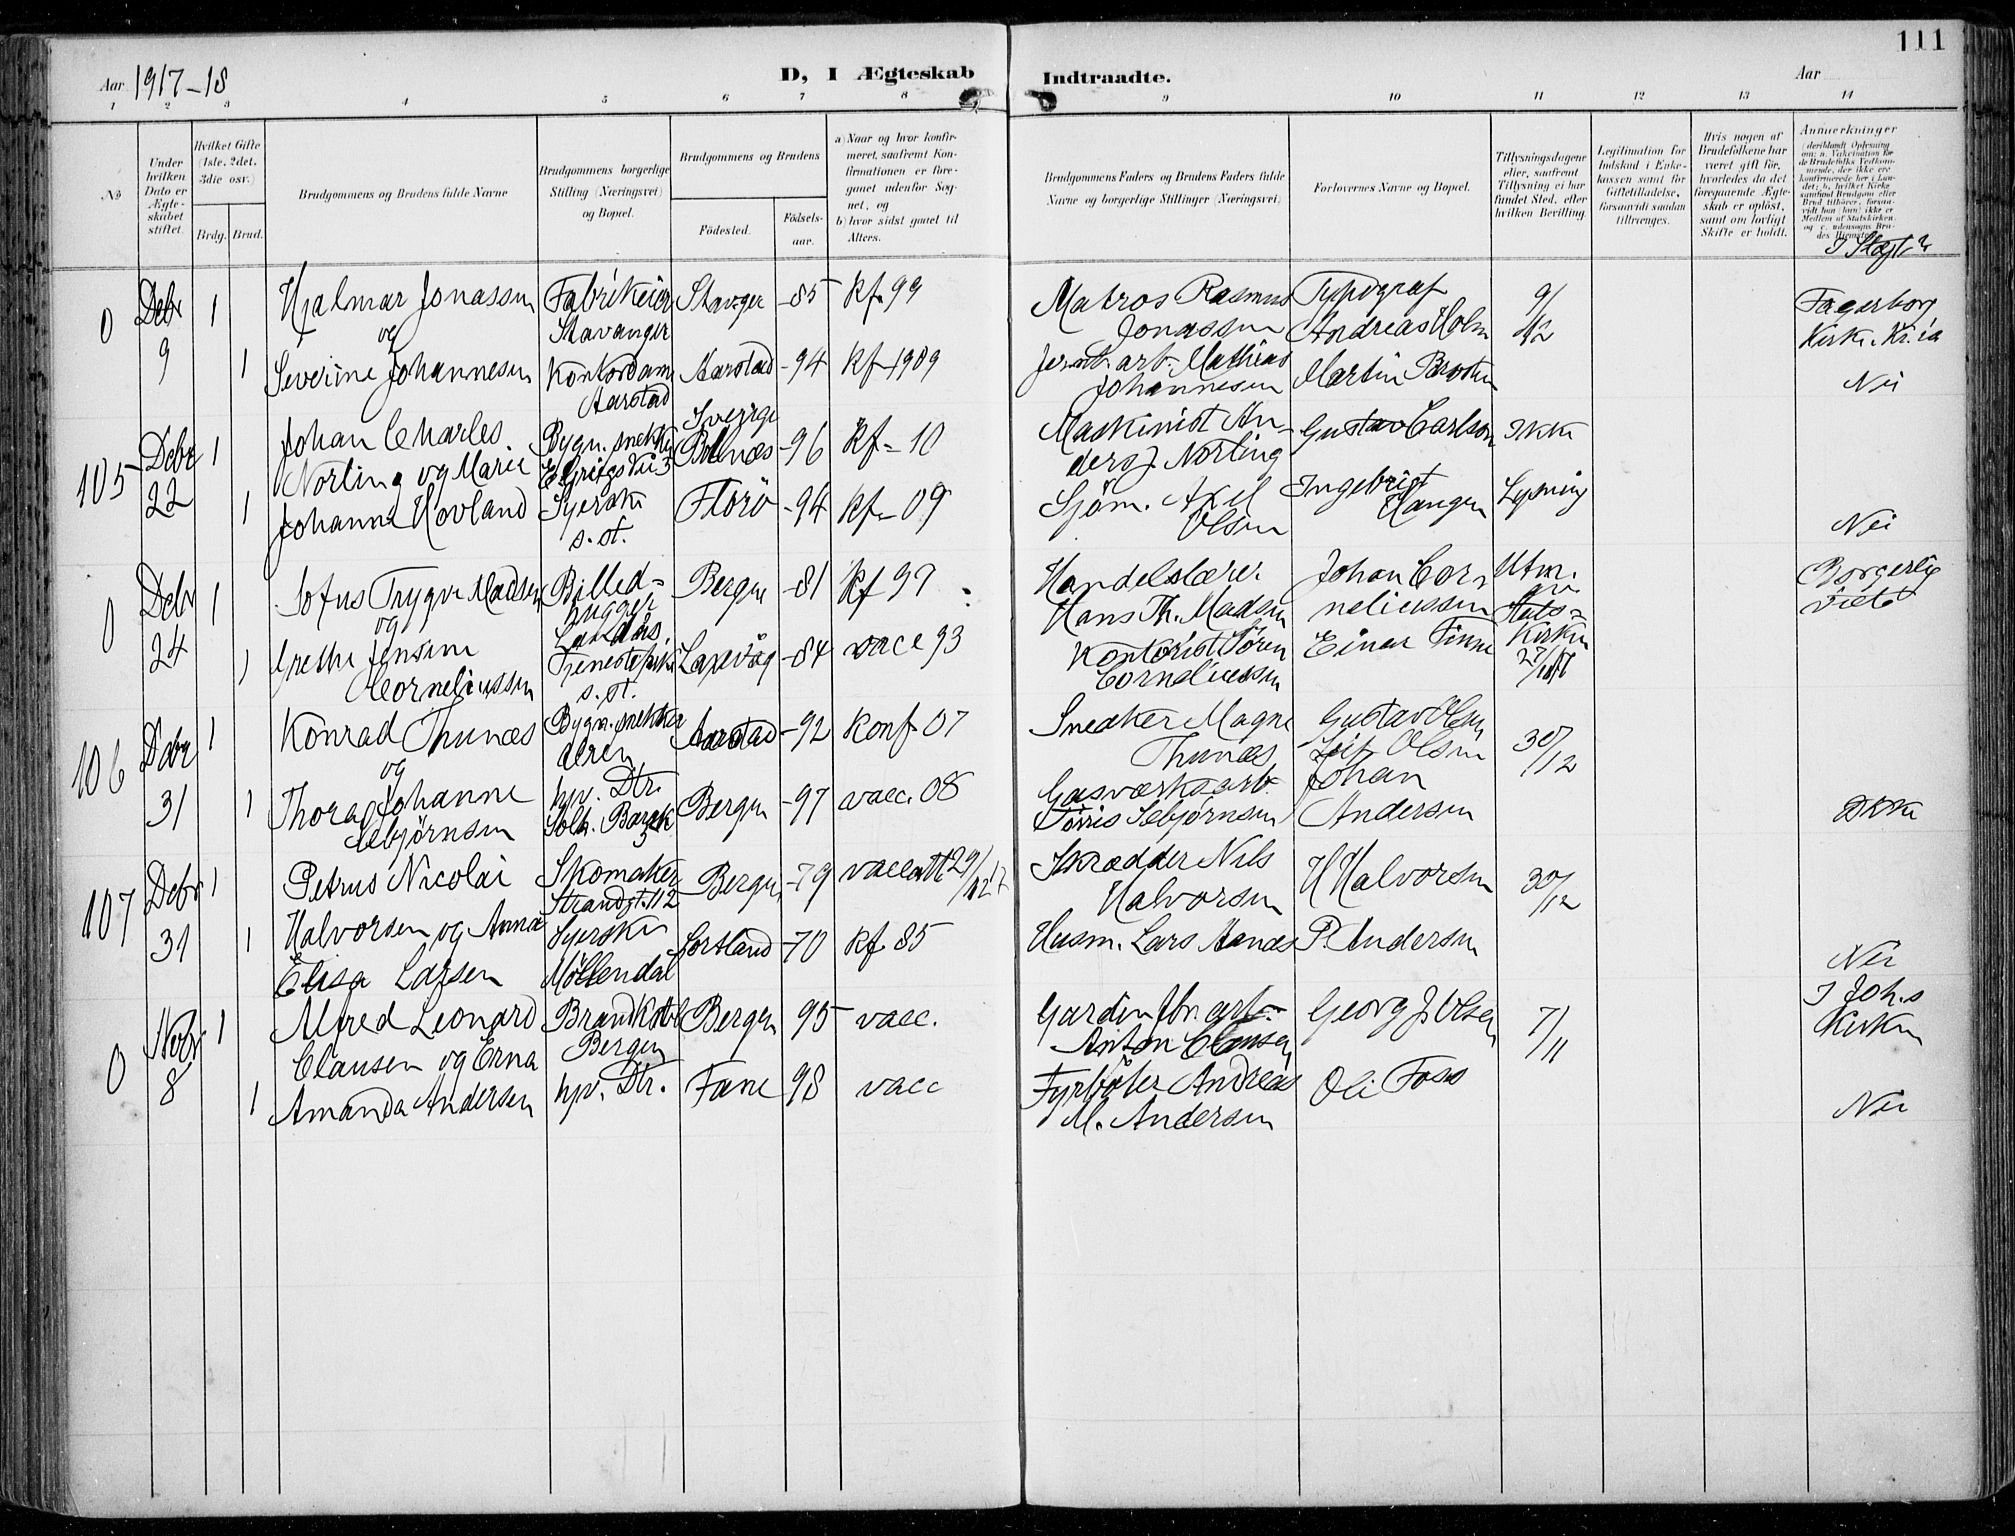 111
Aar 1917-18
D, I Ægteskab Indtraadte.
Aar
1 2 3 4 5 6 7 8 9 10 11 12 13 14
No
Under hvilken Dato er Ægteskabet stiftet.
Hvilket Gifte (1ste, 2det, 3die osv.)
Brdg. Brud.
Brudgommens og Brudens fulde Navne
Brudgommens borgerlige Stilling (Næringsvei) og Bopæl.
Brudgommens og Brudens
Fødested.
Fødsels-aar.
a) Naar og hvor konfirmeret, saafremt Konfirmationen er foregaaet udenfor Sognet, og
b) hvor sidst gaaet til Alters.
Brudgommens Faders og Brudens Faders fulde Navne og borgerlige Stillinger (Næringsvei)
Forlovernes Navne og Bopæl.
Tillysningsdagene eller, saafremt Tillysning ei har fundet Sted, efter hvilken Bevilling.
Legitimation for Indskud i Enkekassen samt for Giftetilladelse, forsaavidt saadan tiltrænges.
Hvis nogen af Brudefolkene har været gift før, hvorledes da det foregaaende Ægteskab er opløst, samt om lovligt Skifte er holdt.
Anmerkninger
0 Debr 9 1 Hjalmar Jonassen Fabrikeier Stavanger Stavger -85 kf. 99 Matros Rasmus Jonassen Typograf Andreas Holm 9/12 Fagerborg Kirke. Kr.ia
og
1 Severine Johannesen Kontordame Aarstad Aarstad -94 kf 1909 arb. Mathias Johannesen Martin Nei
105 Debr 22 1 Johan Charles Norling og Marie Bygn. snekker Sverige -96 kf- 10 Maskinist Anders J. Norling Gustav Carlson Ikke
1 Johanne Hovland Syerske s. st. Florö -94 kf- 09 Sjöm. Axel Olsen Ingebrigt Haugen Lysning Nei
0 Debr 24 1 Sofus Trygve Madsen Billedhugger Landås. Bergen -81 kf 97 Handelslærer Hans Th. Madsen Johan Corneliussen Utm. av Statskirken 27/ 17 Borgerlig viet
og
1 Grethe Jensine Corneliussen Tjenestepike s. st. Laxevåg -84 vacc 93 Kontorist Sören Corneliussen Einar Finne
106 Debr 31 1 Konrad Thunæs Bygn. snekker Aarstad -92 Konf 07 Snedker Magne Thunæs Gustav Olsen Leif Olsen 30/12
og
1 Thora Johanne Sebjørnsen hjv. Dtr. Bergen -97 vacc. 08 Gasværksarb. Sebjørnsen Johan Andersen
107 Debr 31 1 Petrus Nicolai Halvorsen og Anna Skomaker Strandgt. 112 Bergen -79 vacc 29/12 17 Skrædder Nils Halvorsen H Halvorsen 30/12
1 Elisa Larsen Syerske Møllendal Sortland -70 kf 85 Husm. Lars P. Andersen Nei
0 Novbr 8 1 Alfred Leonard Clausen og Erna Bergen Bergen 95 vacc. Gardinfbr. arb. Anton Clausen Georg J. Olsen 7/11 I Joh.s Kirken
1 Amanda Andersen hjv. Dtr. Fane 98 vacc Fyrböter Andreas M. Andersen Ole Foss Nei